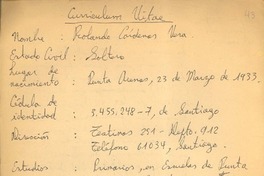 43
Curriculum Vitae
Nombre : Rolando Cárdenas Vera.
Estado Civil : Soltero
Lugar de
nacimiento : Punta Arenas, 23 de Marzo de 1933.
Cédula de
identidad : 3.455.248-7, de Santiago
Dirección : Teatinos 251 - Depto. 912
Teléfono 61034, Santiago.
Estudios : Primarios, en Escuelas de Punta